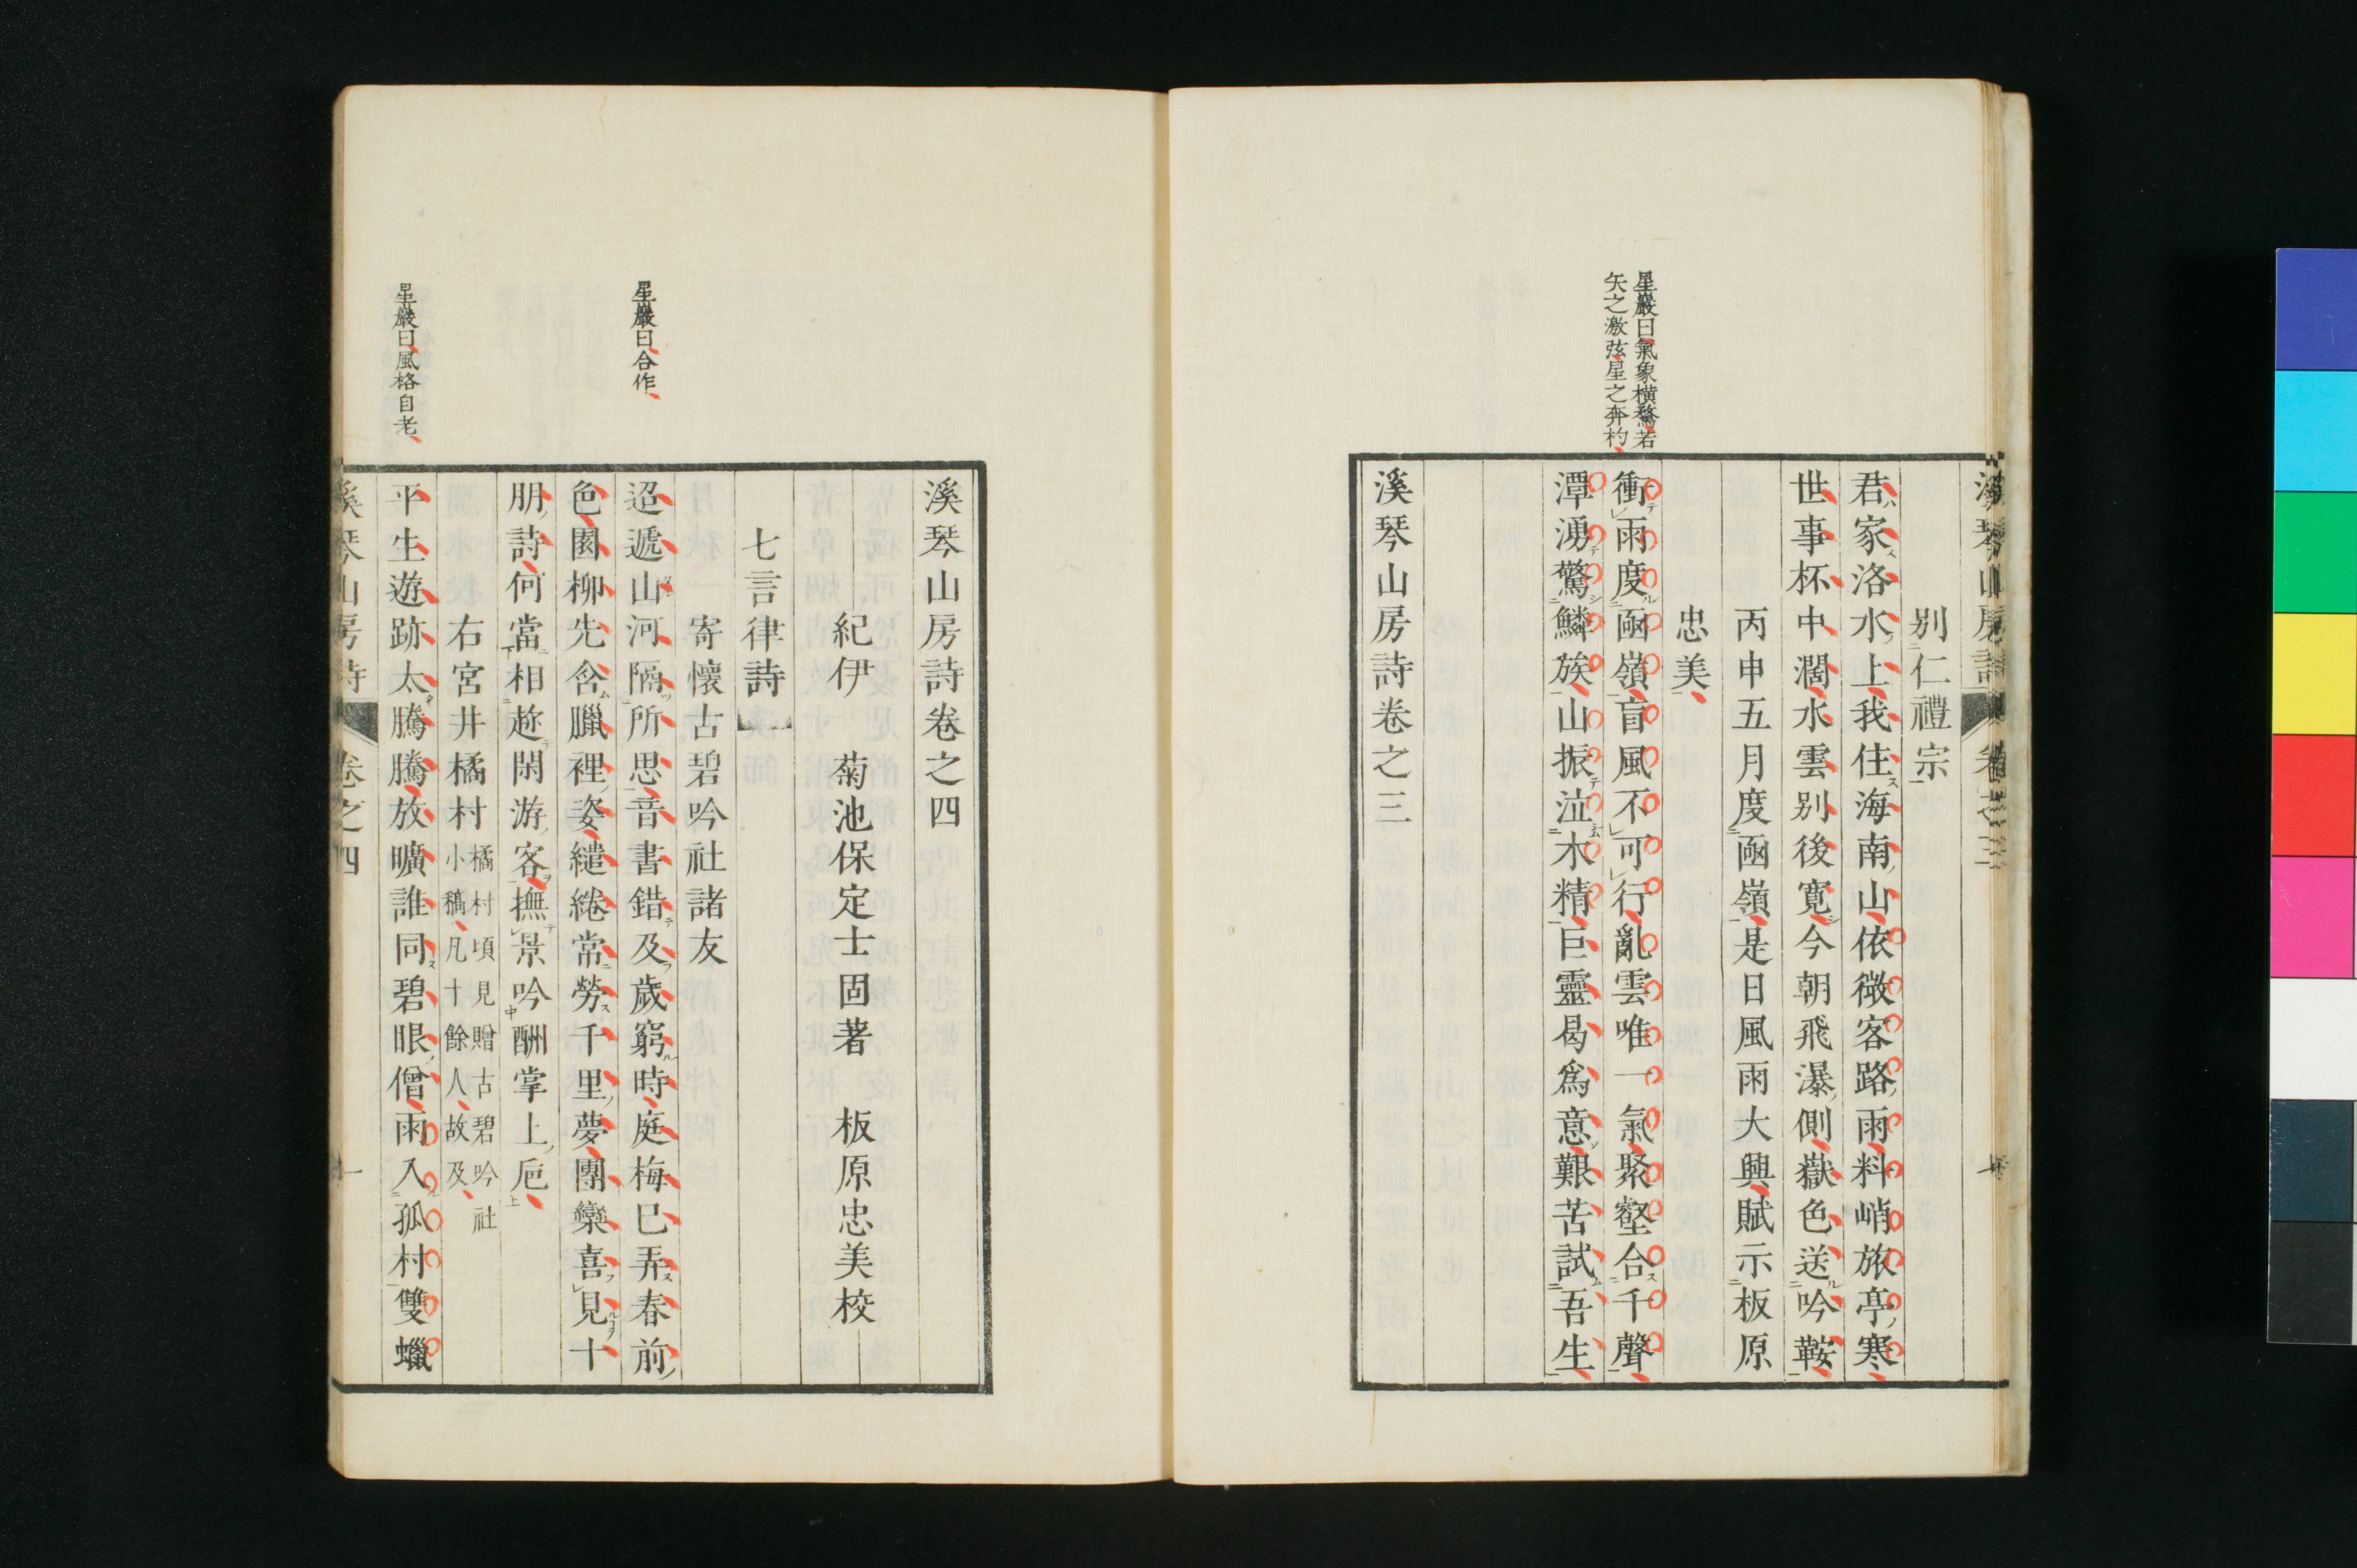 溪琴山房詩 卷之三
別仁禮宗
君家洛水上我住海南山依微客路雨料峭旅亭寒
世事杯中濶水雲別後寬今朝飛瀑側嶽色送吟鞍
丙申五月度凾嶺是日風雨大興賦示板原
忠美
星巖曰氣象橫騖若
矢之激弦星之奔杓
衝雨度凾嶺盲風不可行亂雲唯一氣聚壑合千聲
潭湧驚鱗族山振泣木精巨靈曷爲意艱苦試吾生
溪琴山房詩卷之三
溪琴山房詩卷之四
紀伊 菊池保定士固著 板原忠美校
七言律詩
寄懷古碧吟社諸友
星巖曰合作
迢遞山河隔所思音書錯及歲窮時庭梅已弄春前
色園柳先含臘裡姿繾綣常勞千里夢團欒喜見十
朋詩何當相趂閑游客撫景吟酬掌上巵
右宮井橘村
橘村頃見贈古碧吟社
小稿凡十餘人故及
星巖曰風格自老
平生遊跡太騰騰放曠誰同碧眼僧雨入孤村雙蠟
溪琴山房詩 卷之四 一